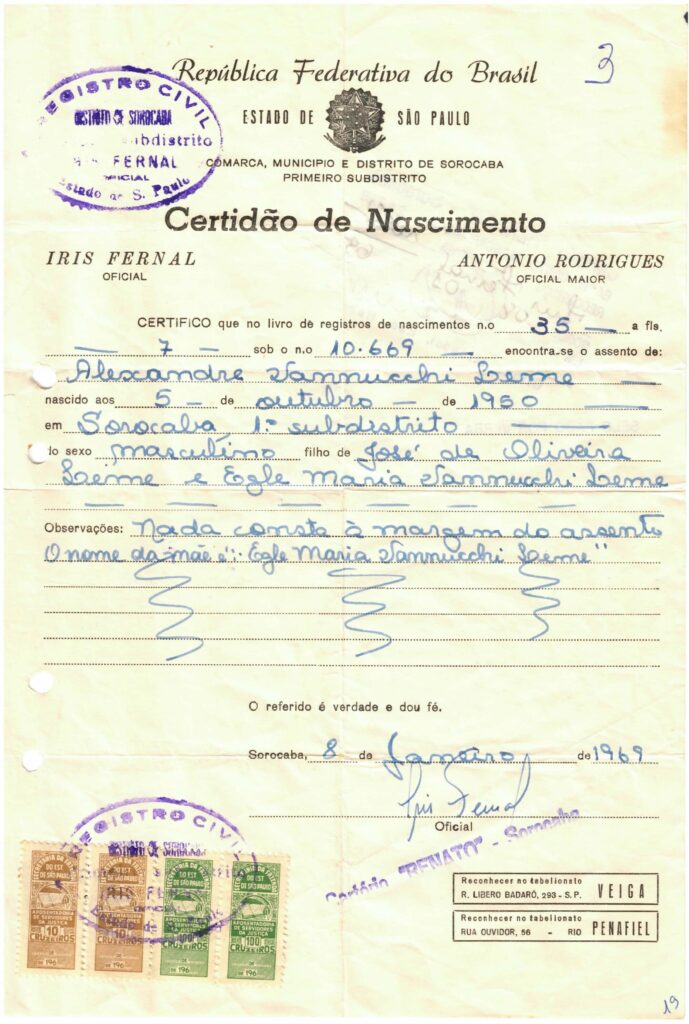 3
República Federativa do Brasil
ESTADO DE SÃO PAULO
REGISTRO CIVIL
DISTRITO DE SOROCABA
Subdistrito
IRIS FERNAL
OFICIAL
Estado de S. Paulo
COMARCA, MUNICIPIO E DISTRITO DE SOROCABA
PRIMEIRO SUBDISTRITO
Certidão de Nascimento
IRIS FERNAL
OFICIAL
ANTONIO RODRIGUES
OFICIAL MAIOR
CERTIFICO que no livro de registros de nascimentos n.o 35 — a fls.
— 7 — sob o n.o 10.669 — encontra-se o assento de:
Alexandre Vannucchi Leme —
nascido aos 5 — de outubro — de 1950 —
em Sorocaba, 1º subdistrito —
do sexo masculino filho de José de Oliveira
Leime e Egle Maria Vannucchi Leme
— — — — — — —
Observações: Nada consta à margem do assento
O nome da mãe é: Egle Maria Vannucchi Leme"
O referido é verdade e dou fé.
Sorocaba, 8 de Janeiro de 1969
Iris Fernal
Oficial
Cartório "RENATO" - Sorocaba
REGISTRO CIVIL
DISTRITO DE SOROCABA
IRIS FERNAL
SECRETARIA DA FAZENDA
DO EST.
DE SÃO PAULO
APOSENTADORIA
DE SERVIDORES
DA JUSTIÇA
10
CRUZEIROS
DE 196
SECRETARIA DA FAZENDA
DO EST.
DE SÃO PAULO
10
DE 196
SECRETARIA DA FAZENDA
DO EST.
DE SÃO PAULO
APOSENTADORIA
DE SERVIDORES
DA JUSTIÇA
100
CRUZEIROS
DE 196
SECRETARIA DA FAZENDA
DO EST.
DE SÃO PAULO
APOSENTADORIA
DE SERVIDORES
DA JUSTIÇA
100
CRUZEIROS
DE 196
Reconhecer no tabelionato
R. LIBERO BADARÓ, 293 - S.P. VEIGA
Reconhecer no tabelionato
RUA OUVIDOR, 56 - RIO PENAFIEL
19